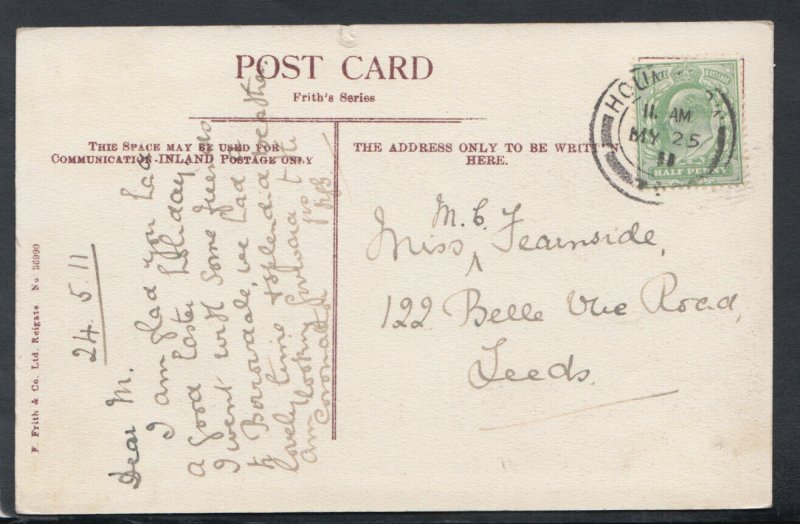 POST CARD
Frith's Series
THIS SPACE MAY BE USED FOR
COMMUNICATION-INLAND POSTAGE ONLY
THE ADDRESS ONLY TO BE WRITTEN
HERE.
F. Frith & Co. Ltd. Reigate. No 56990
24.5.11
Dear M.
I am glad you had
a good Easter Holiday
I went with some friends
to Borrowdale, we had a
lovely time & splendid weather
am looking forward to
Coronation
M.C.
Miss Fearnside,
122 Belle Vue Road,
Leeds.
11 AM
MY 25
11
HALF PENNY